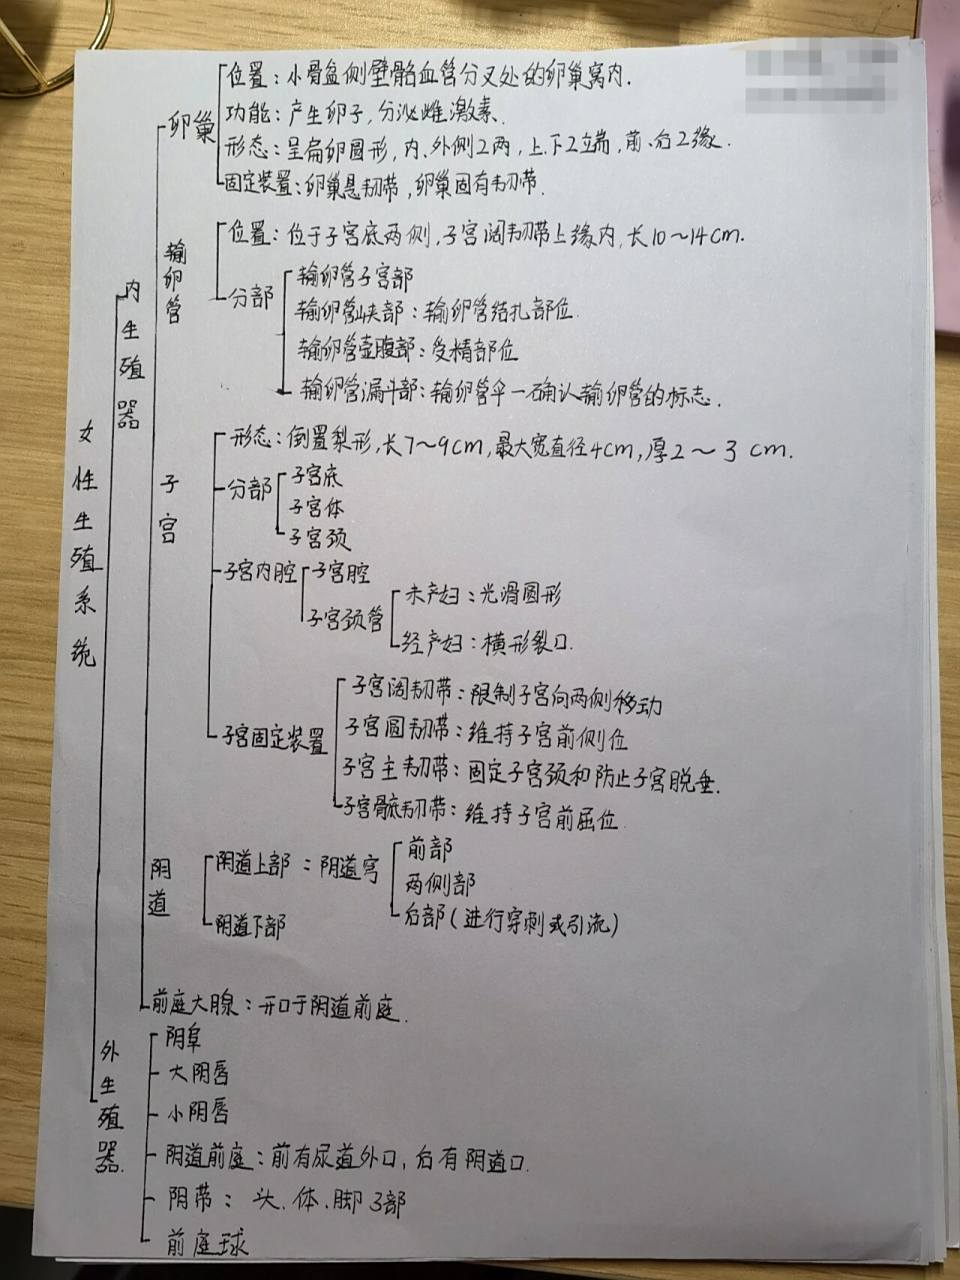 女性生殖系统
内生殖器
卵巢
位置：小骨盆侧壁髂血管分叉处的卵巢窝内.
功能：产生卵子，分泌雌激素.
形态：呈扁卵圆形，内、外侧2两，上、下2端，前、后2缘.
固定装置：卵巢悬韧带，卵巢固有韧带.
输卵管
位置：位于子宫底两侧，子宫阔韧带上缘内，长10～14cm.
分部
输卵管子宫部
输卵管峡部：输卵管结扎部位.
输卵管壶腹部：受精部位
输卵管漏斗部：输卵管伞—确认输卵管的标志.
子宫
形态：倒置梨形，长7～9cm，最大宽直径4cm，厚2～3cm.
分部
子宫底
子宫体
子宫颈
子宫内腔
子宫腔
子宫颈管
未产妇：光滑圆形
经产妇：横形裂口.
子宫固定装置
子宫阔韧带：限制子宫向两侧移动
子宫圆韧带：维持子宫前侧位
子宫主韧带：固定子宫颈和防止子宫脱垂.
子宫骶韧带：维持子宫前屈位
阴道
阴道上部：阴道穹
前部
两侧部
后部（进行穿刺或引流）
阴道下部
前庭大腺：开口于阴道前庭.
外生殖器.
阴阜
大阴唇
小阴唇
阴道前庭：前有尿道外口，后有阴道口.
阴蒂：头、体、脚3部
前庭球